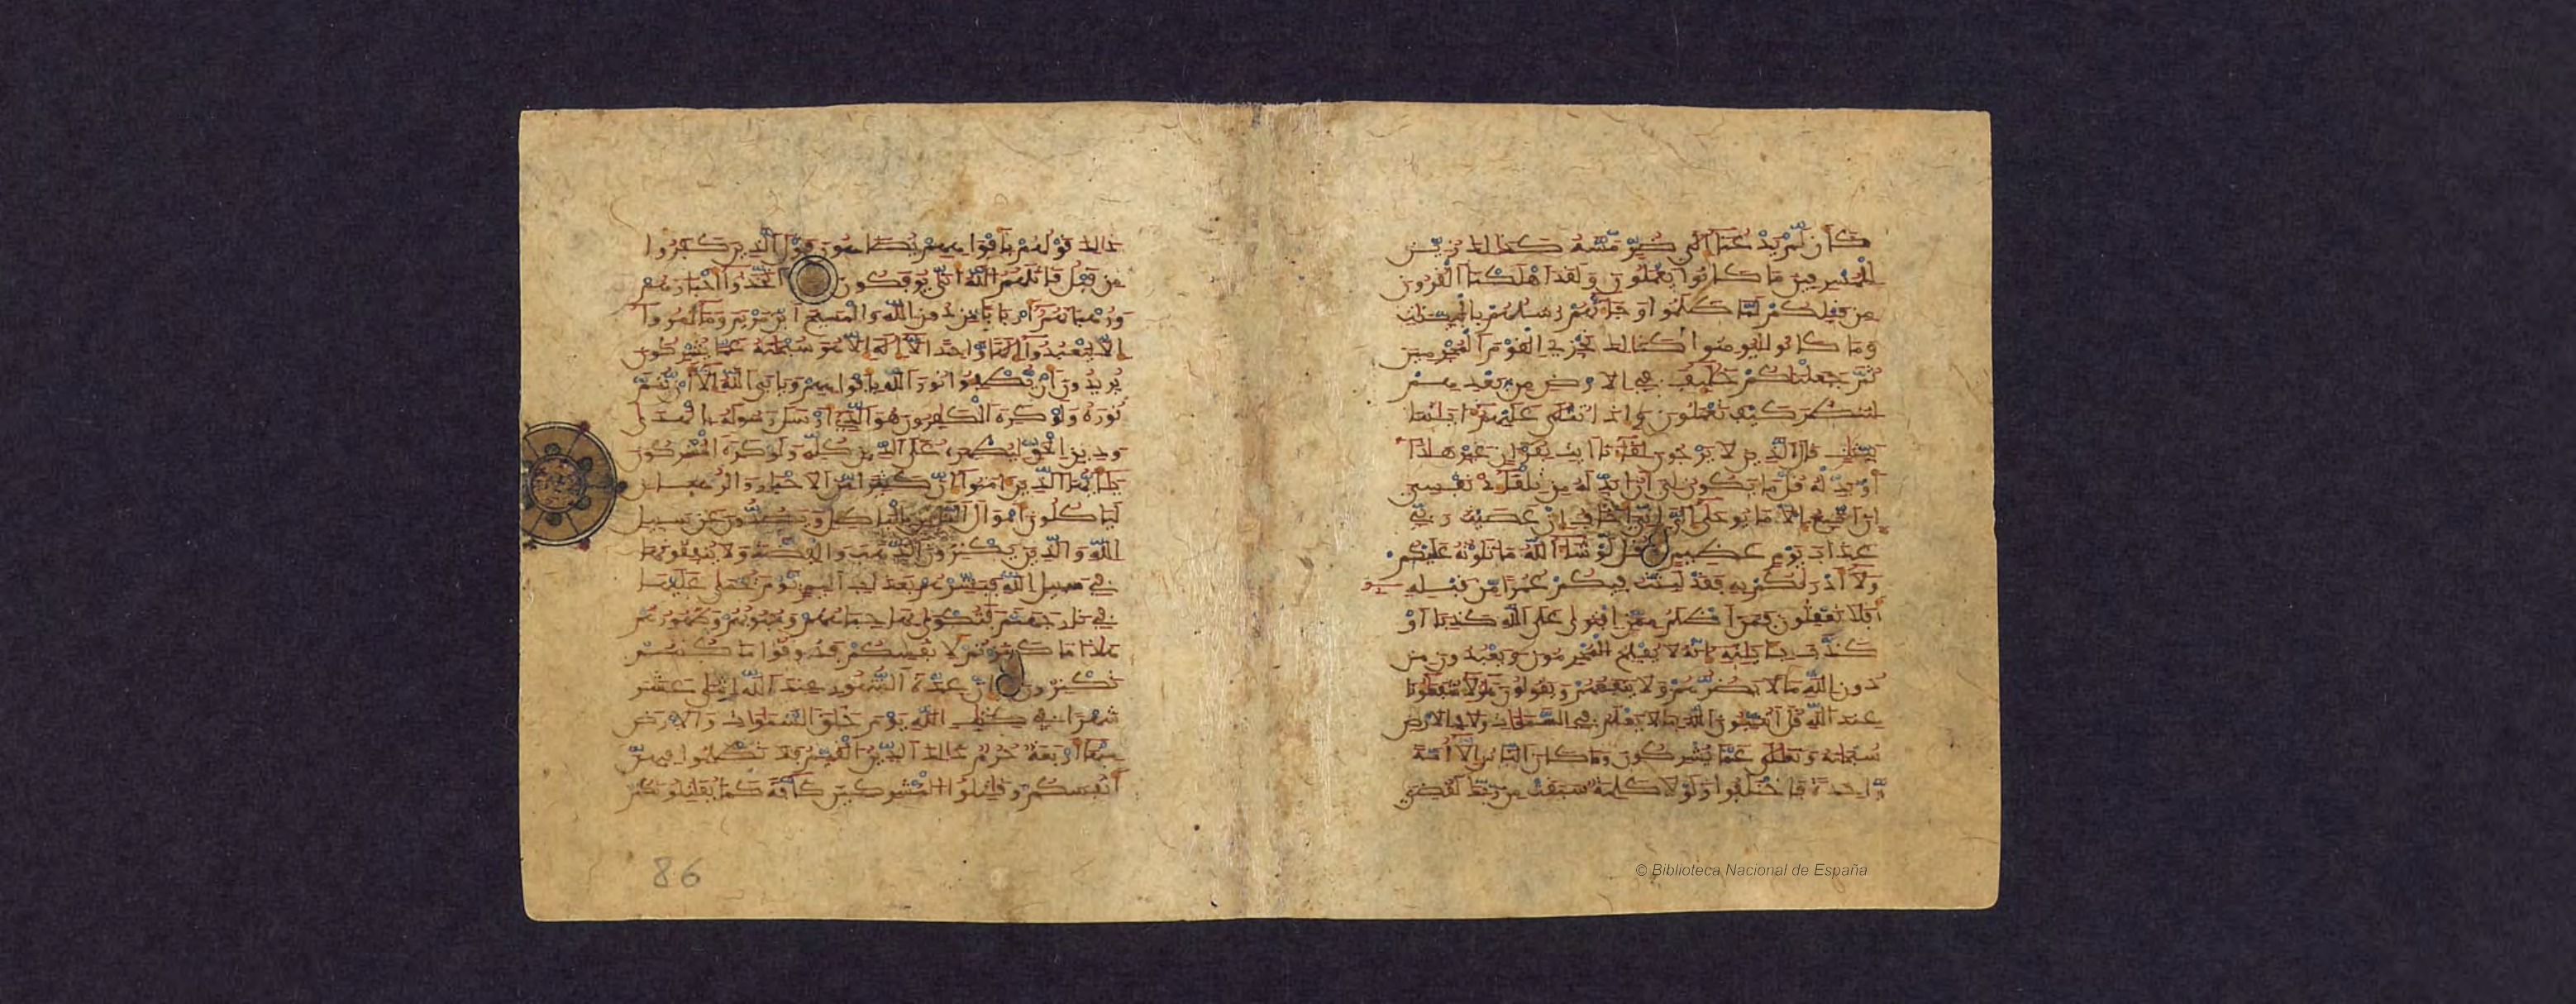 كأن لم يدعنا إلى ضر مسه كذلك زين
للمسرفين ما كانوا يعملون ولقد أهلكنا القرون
من قبلكم لما ظلموا وجاءتهم رسلهم بالبينات
وما كانوا ليؤمنوا كذلك نجزي القوم المجرمين
ثم جعلناكم خلائف في الأرض من بعدهم
لننظر كيف تعملون وإذا تتلى عليهم آياتنا
بينات قال الذين لا يرجون لقاءنا ائت بقرآن غير هذا
أو بدله قل ما يكون لي أن أبدله من تلقاء نفسي
إن أتبع إلا ما يوحى إلي إني أخاف إن عصيت ربي
عذاب يوم عظيم قل لو شاء الله ما تلوته عليكم
ولا أدريكم به فقد لبثت فيكم عمرا من قبله
أفلا تعقلون فمن أظلم ممن افترى على الله كذبا أو
كذب بآياته إنه لا يفلح المجرمون ويعبدون من
دون الله ما لا يضرهم ولا ينفعهم ويقولون هؤلاء شفعاؤنا
عند الله قل أتنبئون الله بما لا يعلم في السماوات ولا في الأرض
سبحانه وتعالى عما يشركون وما كان الناس إلا أمة
واحدة فاختلفوا ولولا كلمة سبقت من ربك لقضي
ذلك قولهم بأفواههم يضاهون قول الذين كفروا
من قبل قاتلهم الله أنى يؤفكون اتخذوا أحبارهم
ورهبانهم أربابا من دون الله والمسيح ابن مريم وما أمروا
إلا ليعبدوا إلها واحدا لا إله إلا هو سبحانه عما يشركون
يريدون أن يطفئوا نور الله بأفواههم ويأبى الله إلا أن يتم
نوره ولو كره الكافرون هو الذي أرسل رسوله بالهدى
ودين الحق ليظهره على الدين كله ولو كره المشركون
يا أيها الذين آمنوا إن كثيرا من الأحبار والرهبان
ليأكلون أموال الناس بالباطل ويصدون عن سبيل
الله والذين يكنزون الذهب والفضة ولا ينفقونها
في سبيل الله فبشرهم بعذاب أليم يوم يحمى عليها
في نار جهنم فتكوى بها جباههم وجنوبهم وظهورهم
هذا ما كنزتم لأنفسكم فذوقوا ما كنتم
تكنزون إن عدة الشهور عند الله اثنا عشر
شهرا في كتاب الله يوم خلق السماوات والأرض
منها أربعة حرم ذلك الدين القيم فلا تظلموا فيهن
أنفسكم وقاتلوا المشركين كافة كما يقاتلونكم
86
© Biblioteca Nacional de España